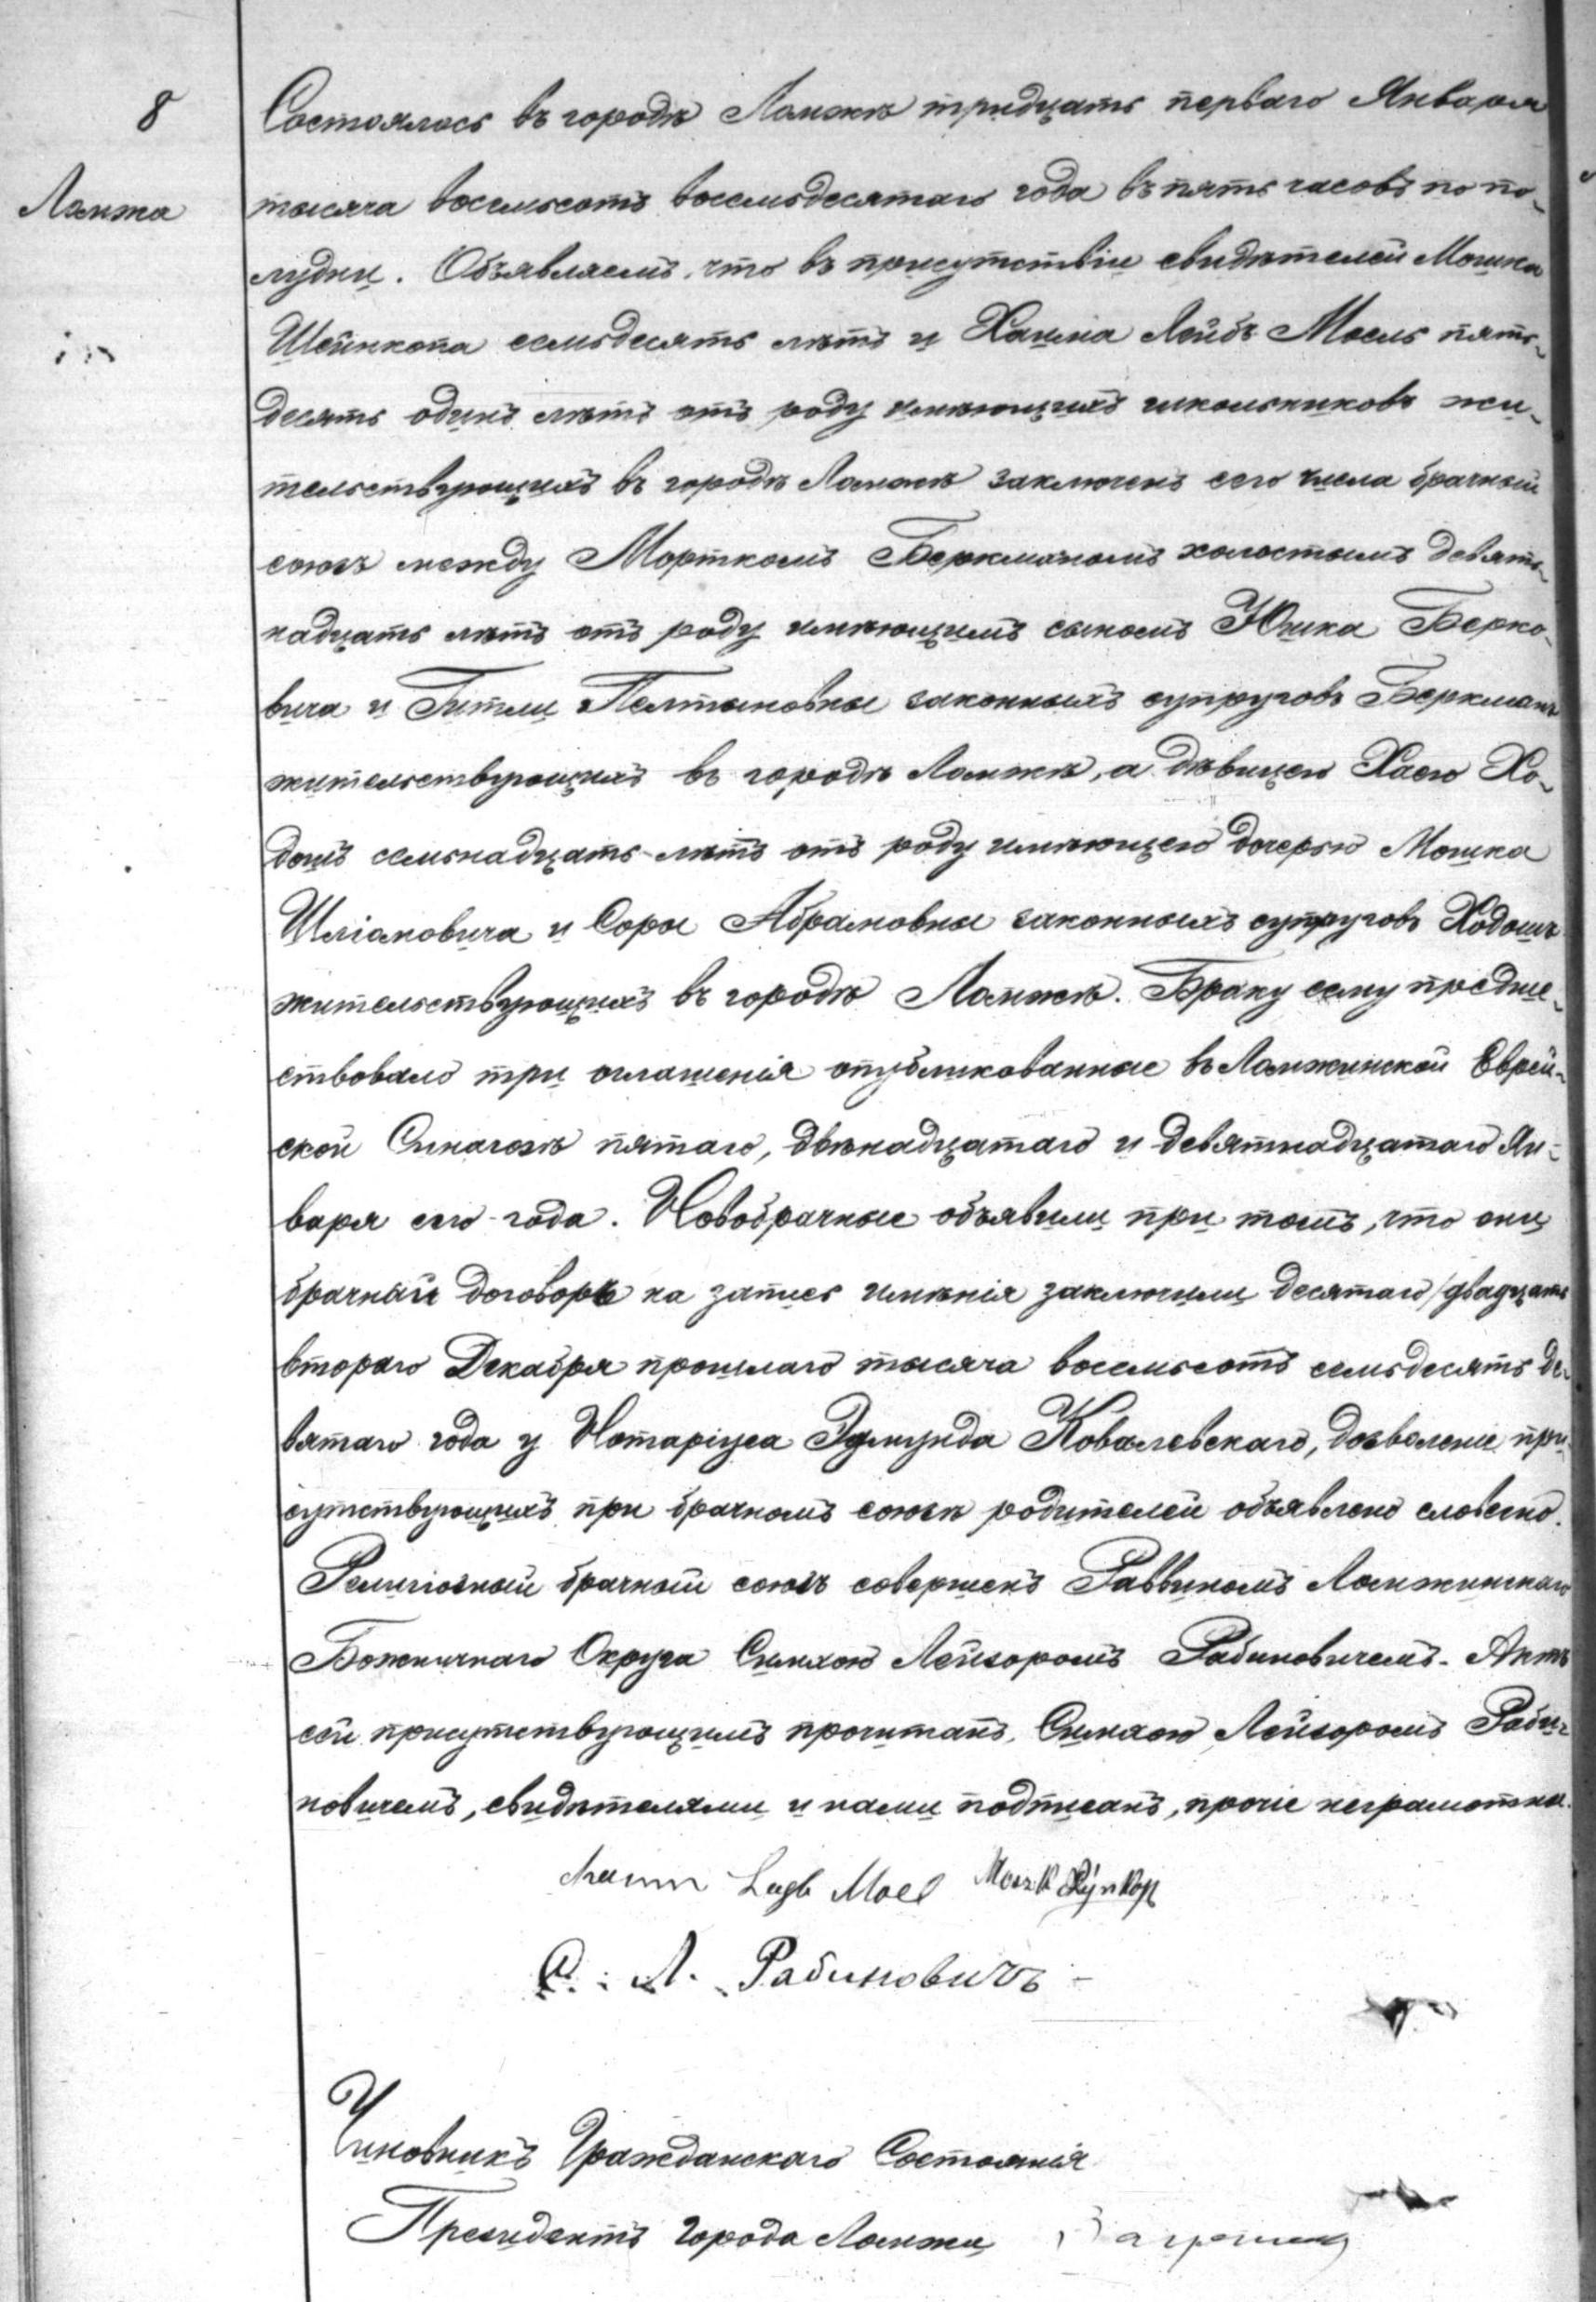 8
Ломжа
Состоялось въ городѣ Ломжѣ тридцать перваго Января
тысяча восемьсотъ восемьдесятаго года въ пять часовъ по по-
лудни. Объявляемъ, что въ присутствіи свидѣтелей Мошка
Шейнкопа семьдесять лѣтъ и Хаима Лейбъ Моель пять-
десять одинъ лѣтъ отъ роду имѣющихъ школьниковъ жи-
тельствующихъ въ городѣ Ломжѣ заключенъ сего числа брачный
союзъ между Морткомъ Беркманомъ холостымъ девять-
надцать лѣтъ отъ роду имѣющимъ сыномъ Юшка Берко-
вича и Гитли Пелтыновны законныхъ супруговъ Беркманъ
жительствующихъ въ городѣ Ломжѣ, а дѣвицею Хаею Хо-
дошъ семьнадцать лѣтъ отъ роду имѣющею дочерью Мошка
Шліомовича и Соры Абрамовны законныхъ супруговъ Ходошъ
жительствующихъ въ городѣ Ломжѣ. Браку сему предше-
ствовало три оглашенія опубликованные въ Ломжинской Еврей-
ской Синагогѣ пятаго, двѣнадцатаго и девятнадцатаго Ян-
варя сего года. Новобрачные объявили при томъ, что они
брачный договоръ на запись имѣнія заключили десятаго/двадцать
втораго Декабря прошлаго тысяча восемьсотъ семьдесять де-
вятаго года у Нотаріуса Эдмунда Ковалевскаго, дозволеніе при-
сутствующихъ при брачномъ союзѣ родителей объявлено словесно.
Религіозный брачный союзъ совершенъ Раввиномъ Ломжинскаго
Божничнаго Округа Симхою Лейзоромъ Рабиновичемъ. Актъ
сей присутствующимъ прочитанъ, Симхою Лейзоромъ Раби-
новичемъ, свидѣтелями и нами подписанъ, прочіе неграмотны.
Leyb Moel
С. Л. Рабиновичъ
Чиновникъ Гражданскаго Состоянія
Президентъ города Ломжи